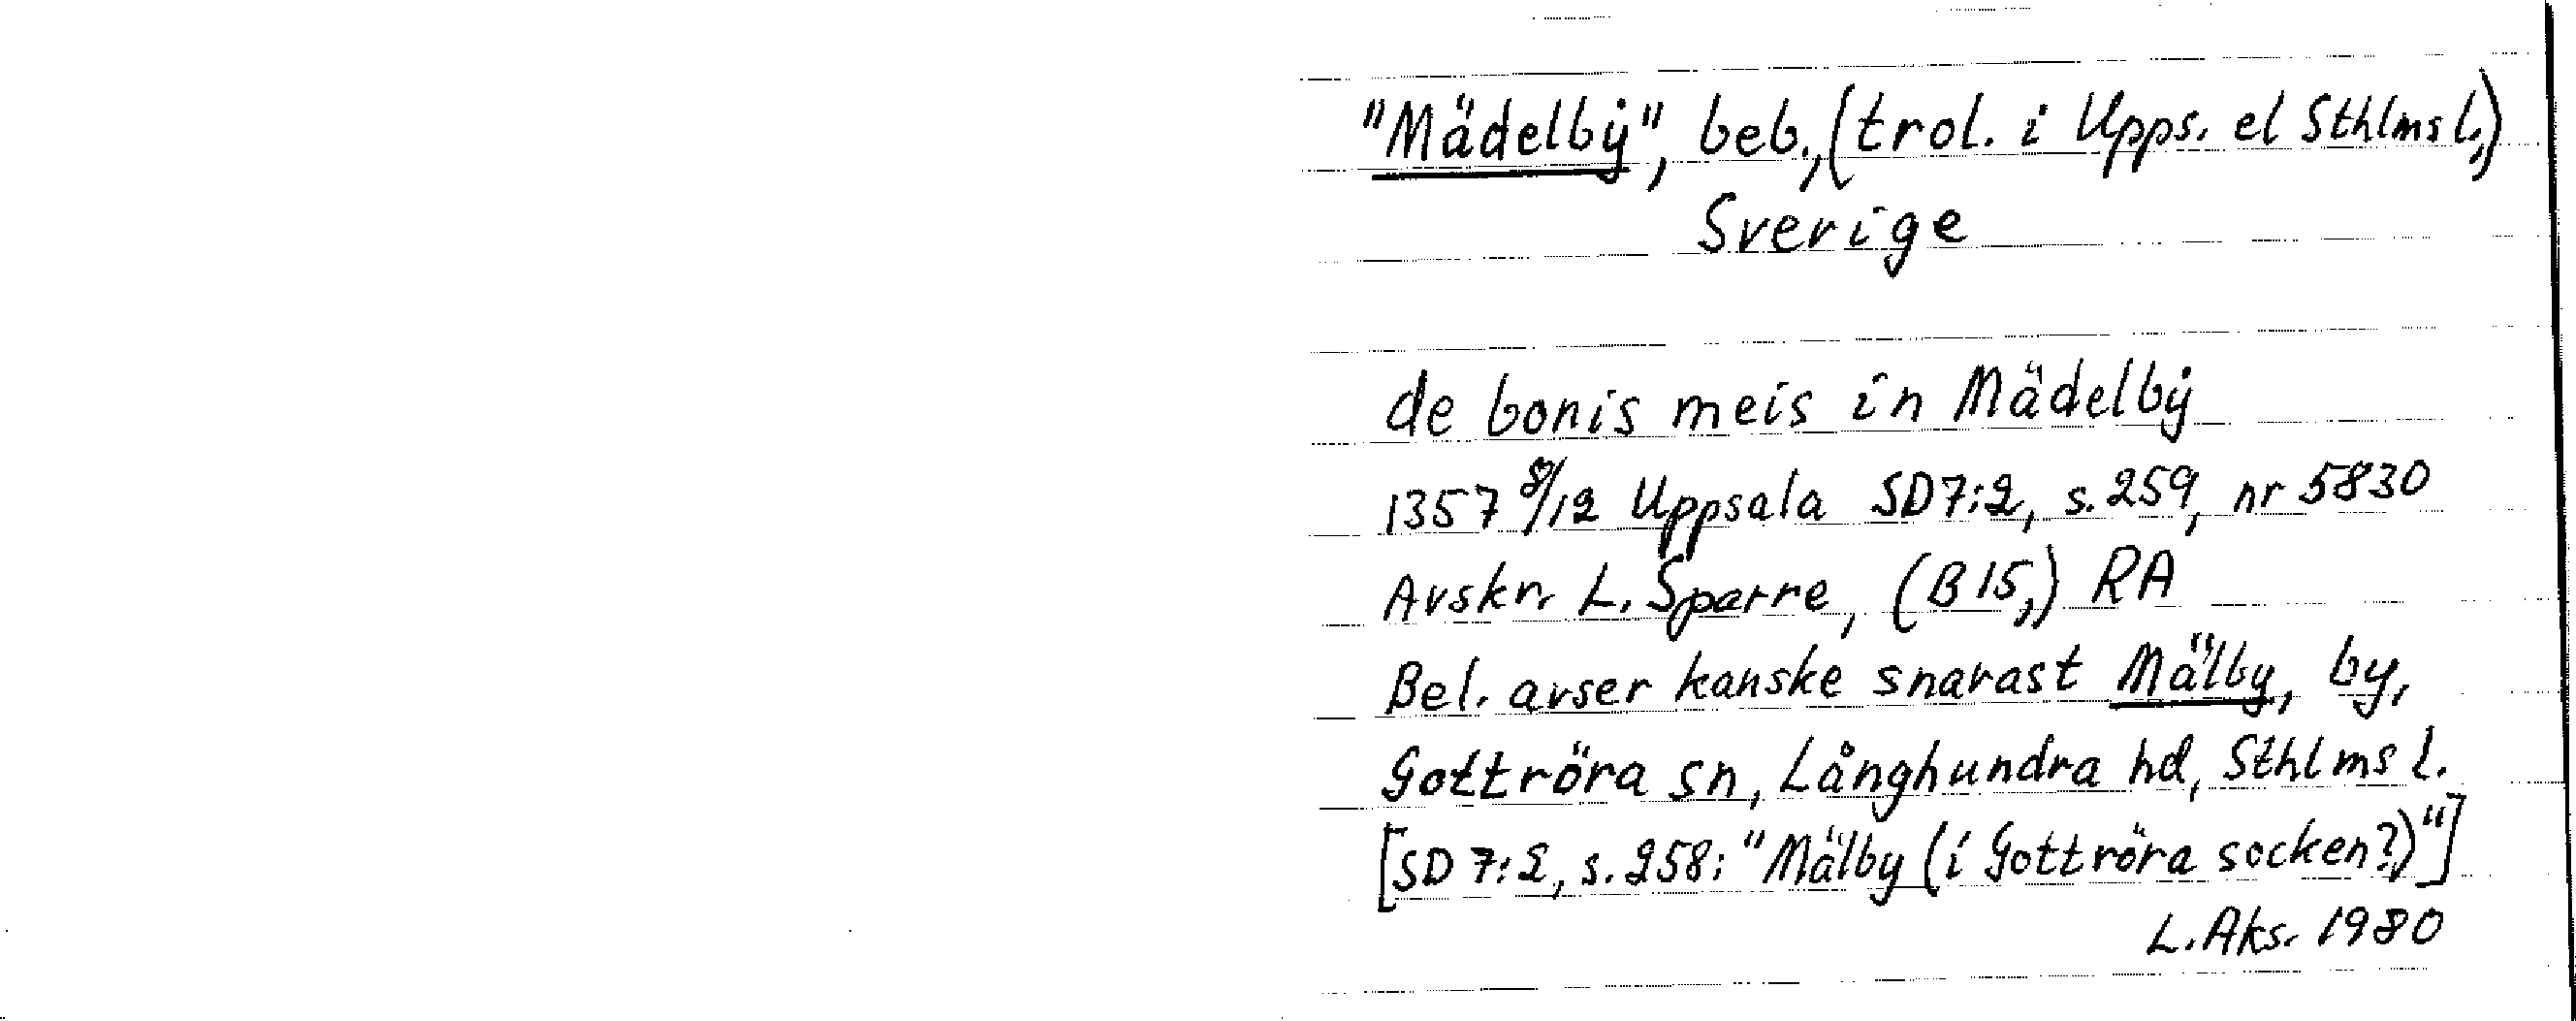 "Mädelbẏ", beb., (trol. i Upps. el Sthlms l.)
Sverige
de bonis meis in Mädelbẏ
1357 8/12 Uppsala SD 7:2, s. 259, nr 5830
Avskr. L. Sparre, (B 15,) RA
Bel. avser kanske snarast Mälby, by,
Gottröra sn, Långhundra hd, Sthlms l.
[SD 7:2, s. 258: "Mälby (i Gottröra socken?)"]
L. Aks. 1980